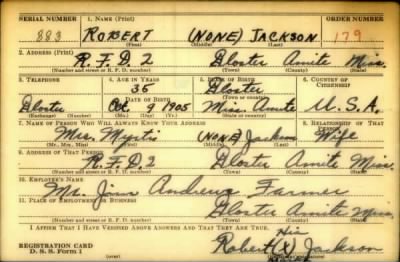 SERIAL NUMBER 1. NAME (Print) ORDER NUMBER
883 ROBERT (NONE) JACKSON 179
(First) (Middle) (Last)
2. ADDRESS (Print)
R.F.D. 2 Gloster Amite Miss.
(Number and street or R. F. D. number) (Town) (County) (State)
3. TELEPHONE 4. AGE IN YEARS 5. PLACE OF BIRTH 6. COUNTRY OF CITIZENSHIP
35 Gloster
(Town or county)
DATE OF BIRTH
Gloster Oct 9 1905 Miss. Amite U.S.A.
(Exchange) (Number) (Mo.) (Day) (Yr.) (State or country)
7. NAME OF PERSON WHO WILL ALWAYS KNOW YOUR ADDRESS 8. RELATIONSHIP OF THAT PERSON
Mrs. Myrtis (None) Jackson Wife
(Mr., Mrs., Miss) (First) (Middle) (Last)
9. ADDRESS OF THAT PERSON
R.F.D. 2 Gloster Amite Miss.
(Number and street or R. F. D. number) (Town) (County) (State)
10. EMPLOYER'S NAME
Mr. Jim Andrews Farmer
11. PLACE OF EMPLOYMENT OR BUSINESS
Gloster Amite Miss.
(Number and street or R. F. D. number) (Town) (County) (State)
I AFFIRM THAT I HAVE VERIFIED ABOVE ANSWERS AND THAT THEY ARE TRUE.
His
REGISTRATION CARD Robert (X) Jackson
D. S. S. Form 1 (over)